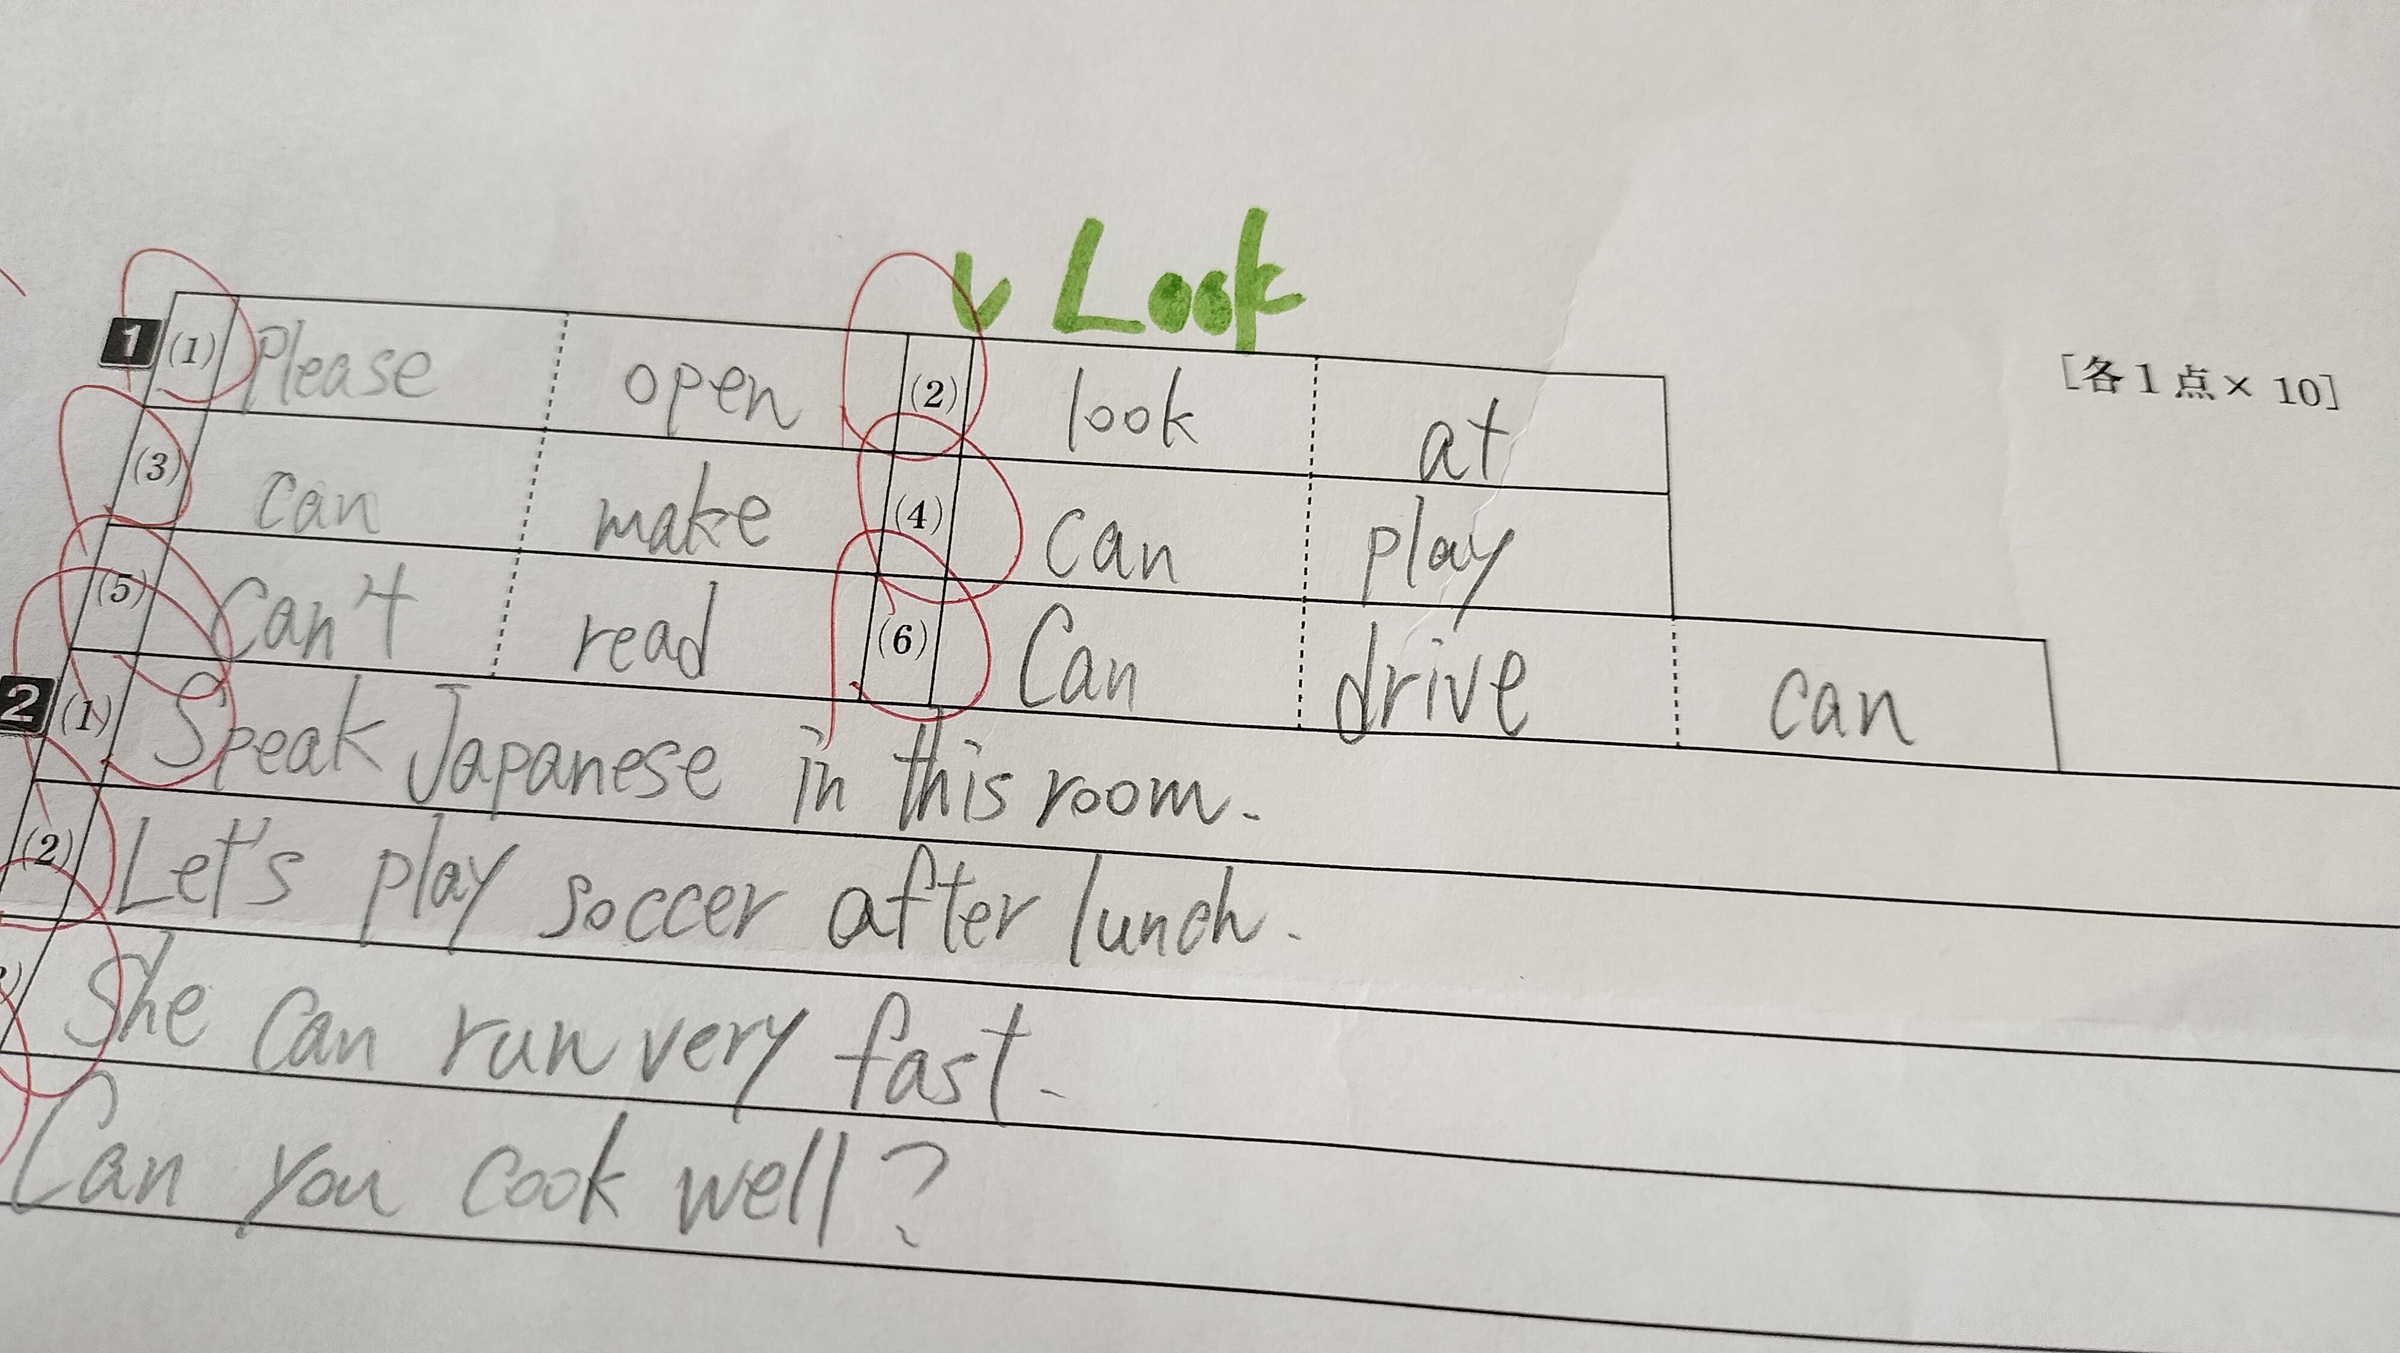 ✓ Look
1 (1) Please open (2) look at [各1点×10]
(3) can make (4) can play
(5) can't read (6) Can drive can
2 (1) Speak Japanese in this room.
(2) Let's play soccer after lunch.
She can run very fast.
Can you cook well?